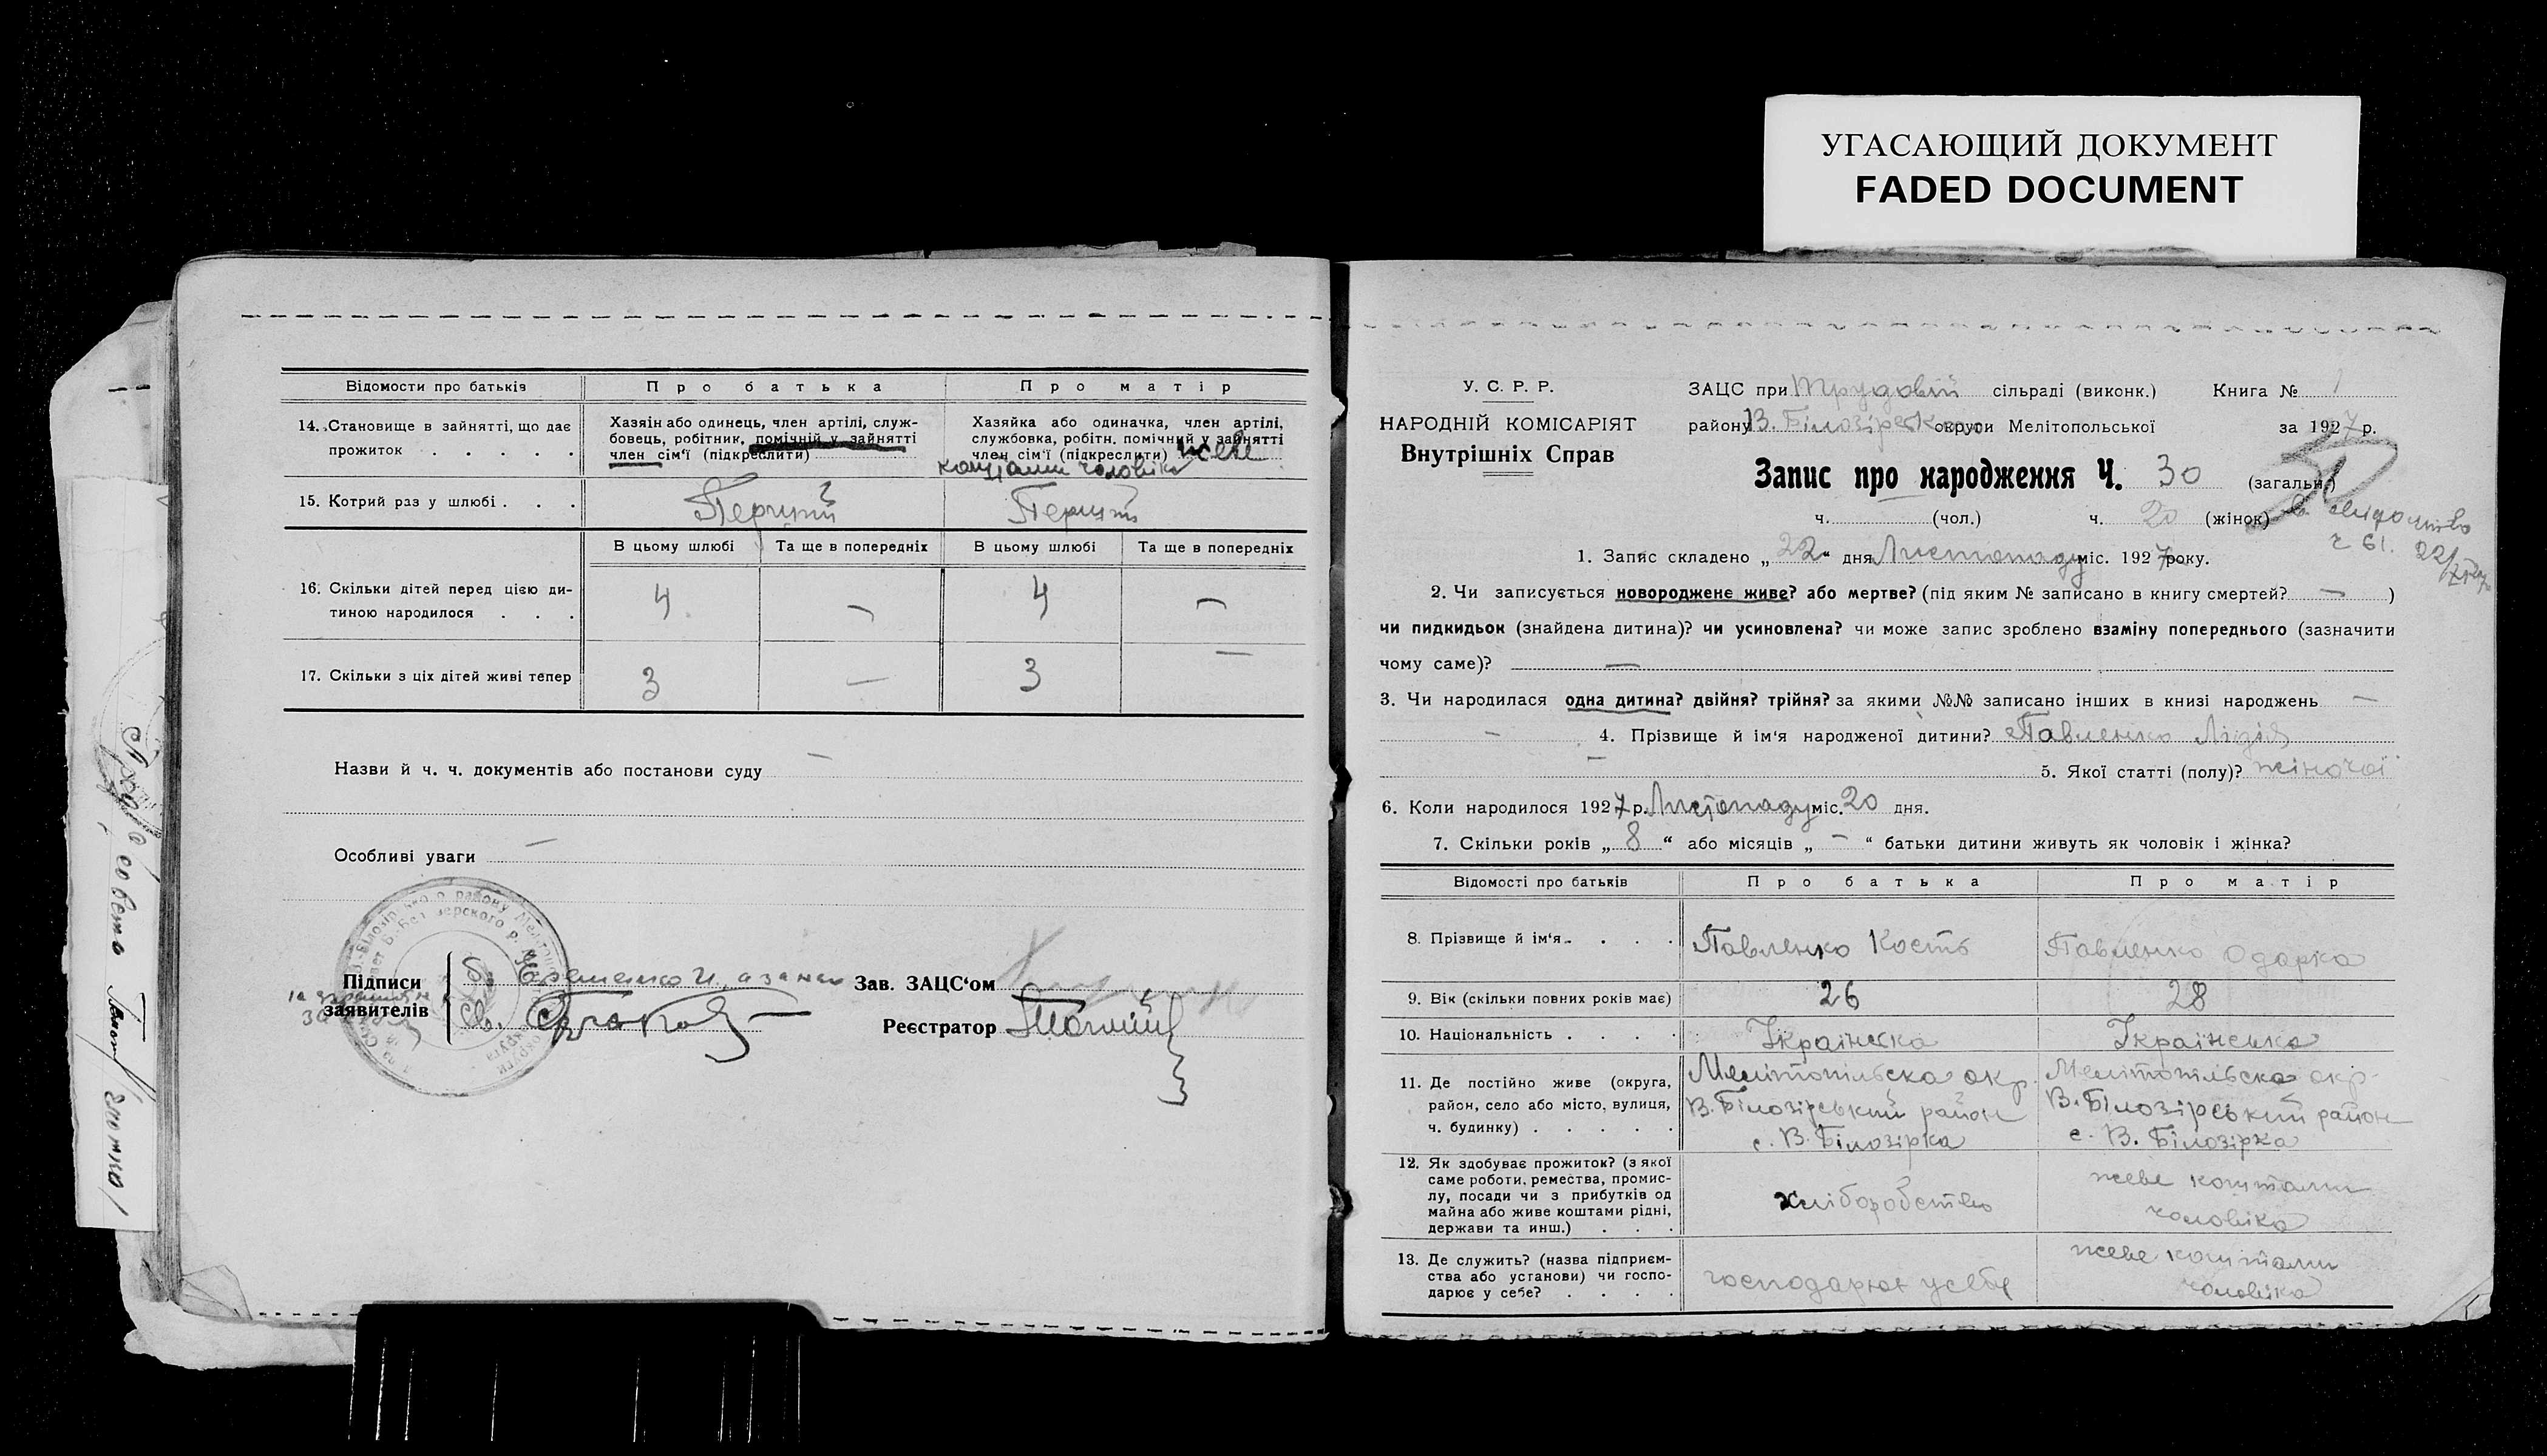 УГАСАЮЩИЙ ДОКУМЕНТ
FADED DOCUMENT
Відомости про батьків
Про батька
Про матір
14. Становище в зайнятті, що дає
прожиток . . . . .
Хазяїн або одинець, член артілі, служ-
бовець, робітник, помічній у зайнятті
член сім'ї (підкреслити)
Хазяйка або одиначка, член артілі,
службовка, робітн. помічний у зайнятті
член сім'ї (підкреслити) жеве
коштами чоловіка
15. Котрий раз у шлюбі . . .
Перший
Перший
В цьому шлюбі
Та ще в попередніх
В цьому шлюбі
Та ще в попередніх
16. Скільки дітей перед цією ди-
тиною народилося . . .
4
—
4
—
17. Скільки з ціх дітей живі тепер
3
—
3
—
Назви й ч. ч. документів або постанови суду —
Особливі уваги —
Підписи
заявителів
Зав. ЗАЦС‘ом
Реєстратор
У. С. Р. Р.
НАРОДНІЙ КОМІСАРІЯТ
Внутрішніх Справ
ЗАЦС при Трудовій сільраді (виконк.) Книга № 1
району В. Білозірська округи Мелітопольської за 1927 р.
Запис про народження Ч. 30 (загальн.)
ч. (чол.) ч. 20 (жінок)
ч 61.
1. Запис складено „ 22 “ дня Листопаду міс. 1927 року.
2. Чи записується новороджене живе? або мертве? (під яким № записано в книгу смертей? — )
чи пидкидьок (знайдена дитина)? чи усиновлена? чи може запис зроблено взаміну попереднього (зазначити
чому саме)? —
3. Чи народилася одна дитина? двійня? трійня? за якими №№ записано інших в книзі народжень —
— 4. Прізвище й ім'я народженої дитини? Павленко Лідія
5. Якої статті (полу)? жіночої
6. Коли народилося 1927 р. Листопаду міс. 20 дня.
7. Скільки років „ 8 “ або місяців „ — “ батьки дитини живуть як чоловік і жінка?
Відомості про батьків
Про батька
Про матір
8. Прізвище й ім'я . . . .
Павленко Кость
Павленко Одарка
9. Вік (скільки повних років має)
26
28
10. Національність . . . .
Українска
Українська
11. Де постійно живе (округа,
район, село або місто, вулиця,
ч. будинку) . . . . .
Мелітопільска окр.
В. Білозірський район
с. В. Білозірка
Мелітопільска окр.
В. Білозірський район
с. В. Білозірка
12. Як здобуває прожиток? (з якої
саме роботи, ремества, промис-
лу, посади чи з прибутків од
майна або живе коштами рідні,
держави та инш.) . . .
хліборобство
жеве коштами
чоловіка
13. Де служить? (назва підприєм-
ства або установи) чи госпо-
дарює у себе? . . . .
господарює у себе
жеве коштами
чоловіка